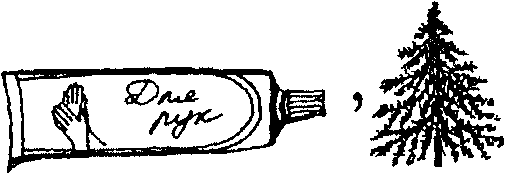 Для
рук
,